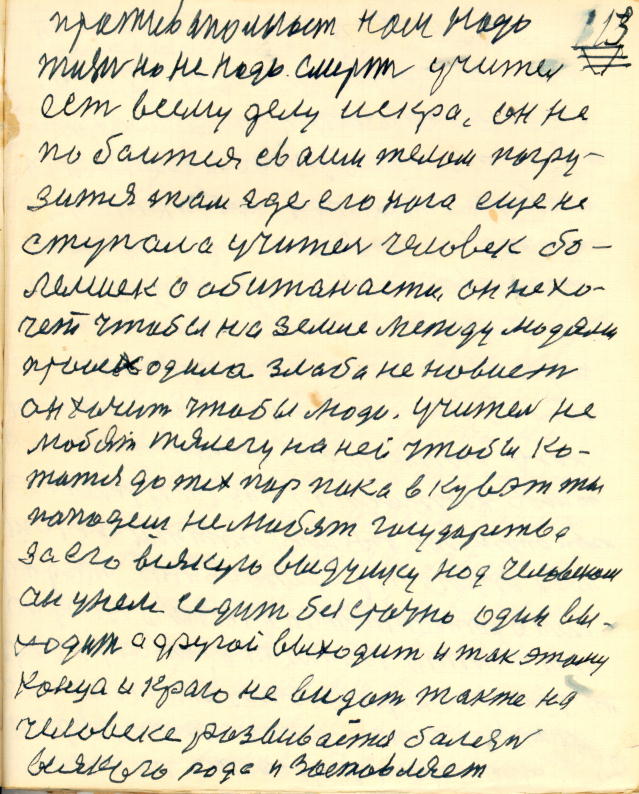 113
противаполност нам надо
жизн но не надо. смерт учител
ест всему делу искра, он не
по боится сваим телом погру-
зится там где его нога еще не
ступала учител человек бо-
лмшек о обитанасти, он не хо-
чет чтобы на земле между людями
происходила злаба не новист
он хочит чтобы люди. учител не
любят тялегу на ней чтобы ко-
татся до тех пор пака в кувэт ты
попадеш не любят государства
за его всякую выдумку над человеком
он у нем седит бессрочно один вы-
ходит а другой выходит и так этому
конца и краю не видат также на
человеке развивается балезн
всякого рода и зоставляет